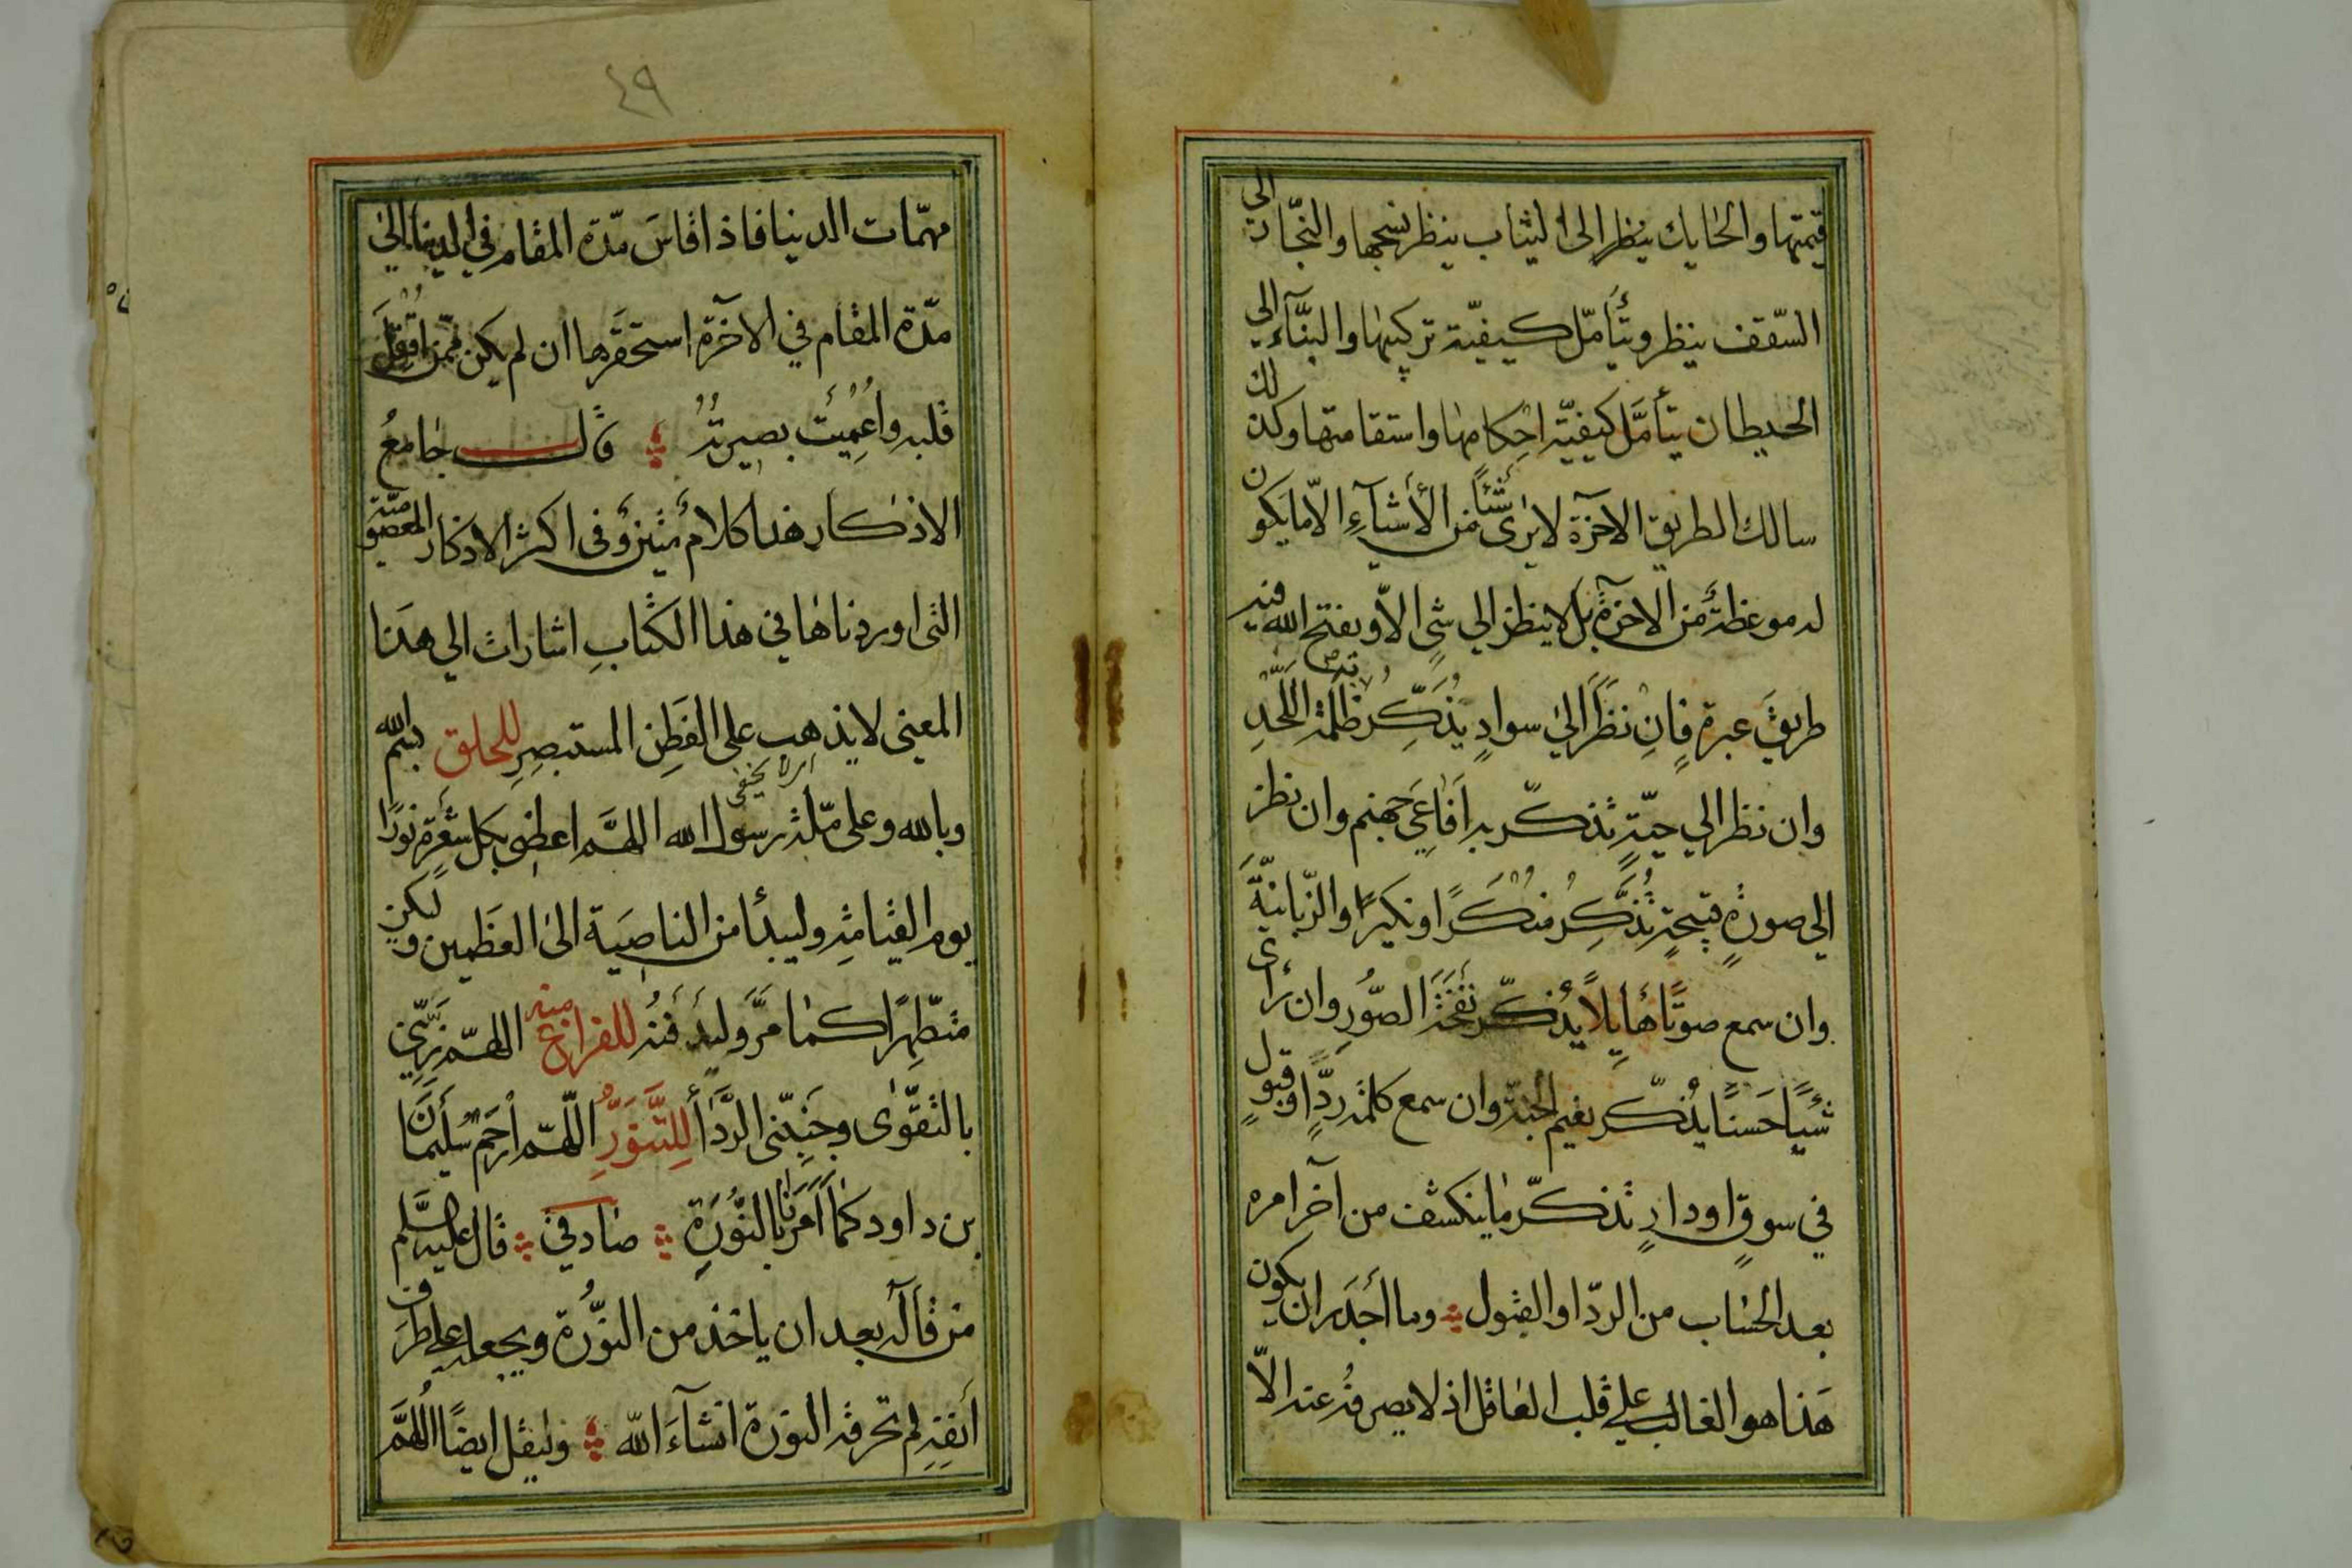 قيمتها والحايك ينظر الى الثياب ينظر نسجها والنجّار الى
السّقف ينظر ويتأمّل كيفيّة تركيبها والبنّآء الى
الحيطان يتأمّل كيفيّة احكامها واستقامتها وكذلك
سالك الطريق الآخرة لا يرى شئاً من الأشيآءِ الاّ ما يكون
له موعظةٌ من الآخرة بل لا ينظر الى شىٍ الاّ ويفتح الله فيه
طريق عبرة فإن نظرَ الىٰ سوادٍ يُذكِّر ظلمةُ اللَّحْدِ
وان نظر الي حيّةٍ تذكّر به افاعىَ جهنم وان نظر
الى صورةٍ قبيحةٍ تُذَكِّر منكرًا ونكيرًا والزّبانيّةَ
وان سمع صوتًا هايلاً يُذكّر نفخةَ الصّورِ وان رأى
شيئًا حَسنًا يُذكّر نعيم الجنة وان سمع كلمة ردٍّ او قبولٍ
في سوقٍ او دارٍ تذكّر ما ينكشف من آخر امره
بعد الحساب من الردّ او القبول وما أجدَر ان يكون
هَذا هو الغالب علي قلب العاقل اذ لا يصرفهُ عنه الاّ
٤٩
مهمّات الدنيا فاذا قاسَ مدّة المقام في الدنيا الىٰ
مدّة المقام في الآخرة استحقرها ان لم يكن ممّن اقفل
قلبه واُعْمِيَت بصيرتُهُ قال جامعُ
الاذكار هذا كلامٌ متينٌ وفى اكثر الاذكار
التى اوردناها في هذا الكتابِ اشارات الي هذا
المعني لا يذهب على الفَطِن المستبصِرِ للحلق بسم الله
اى لا يخفى
وبالله وعلى ملّة رسول الله اللهمَّ اعطنى بكل شعرة نورًا
يوم القيامةِ وليبدأ من الناصيَة الىٰ العَظمين وليكن
متطهرًا كما مرَّ وليدفنهُ للفراغ منه اللهمّ زيّنّي
بالتقوىٰ وجنّبنى الرَّدَأ للتَّنَوُّرِ اللّهمّ ارحم سُلَيمانَ
بن داود كما اَمَرَنا بالنُّورَةِ صادقى قال عليه السَّلم
من قاله بعد ان ياخذ من النُّورة ويجعله على طرَف
أنفِهِ لم تحرقه النورة انشآءَ الله وليقل ايضًا اللّهمَّ